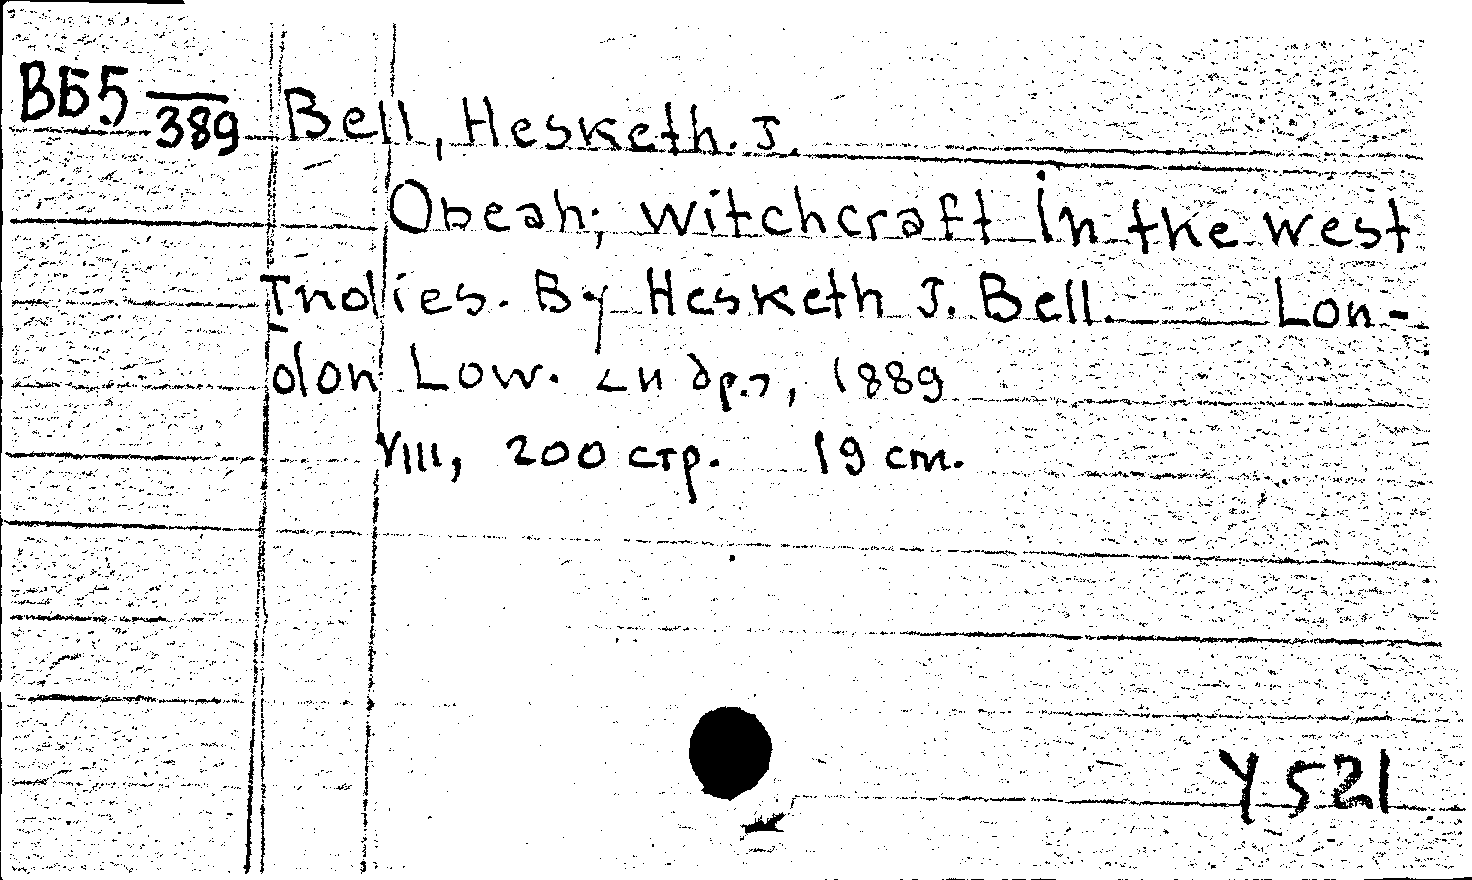 ВБ5 389
Bell, Hesketh. J.
Obeah; witchcraft in the west
Indies. By Hesketh J. Bell. Lon-
don Low. и др., 1889
VIII, 200 стр. 19 cm.
Y 521